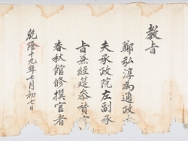 教旨
鄭弘淳為通政大
夫承政院左副承
旨兼經筵參贊官
春秋館修撰官者
乾隆十九年七月初七日